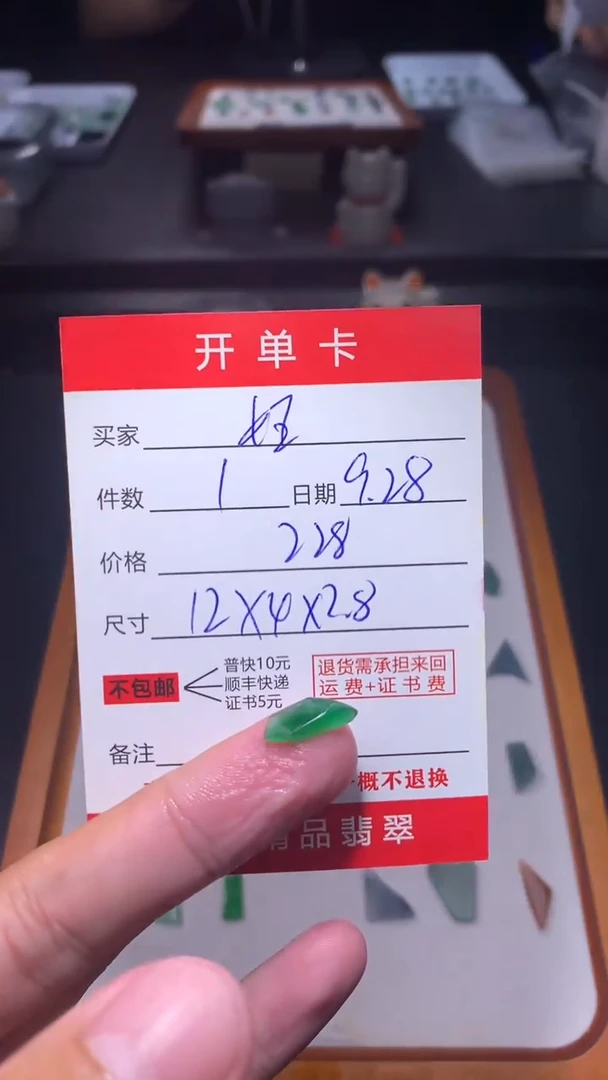 开单卡
买家
件数 1 日期 9.28
价格 228
尺寸 12X4X2.8
不包邮
普快10元
顺丰快递
证书5元
退货需承担来回
运费+证书费
备注
概不退换
品翡翠